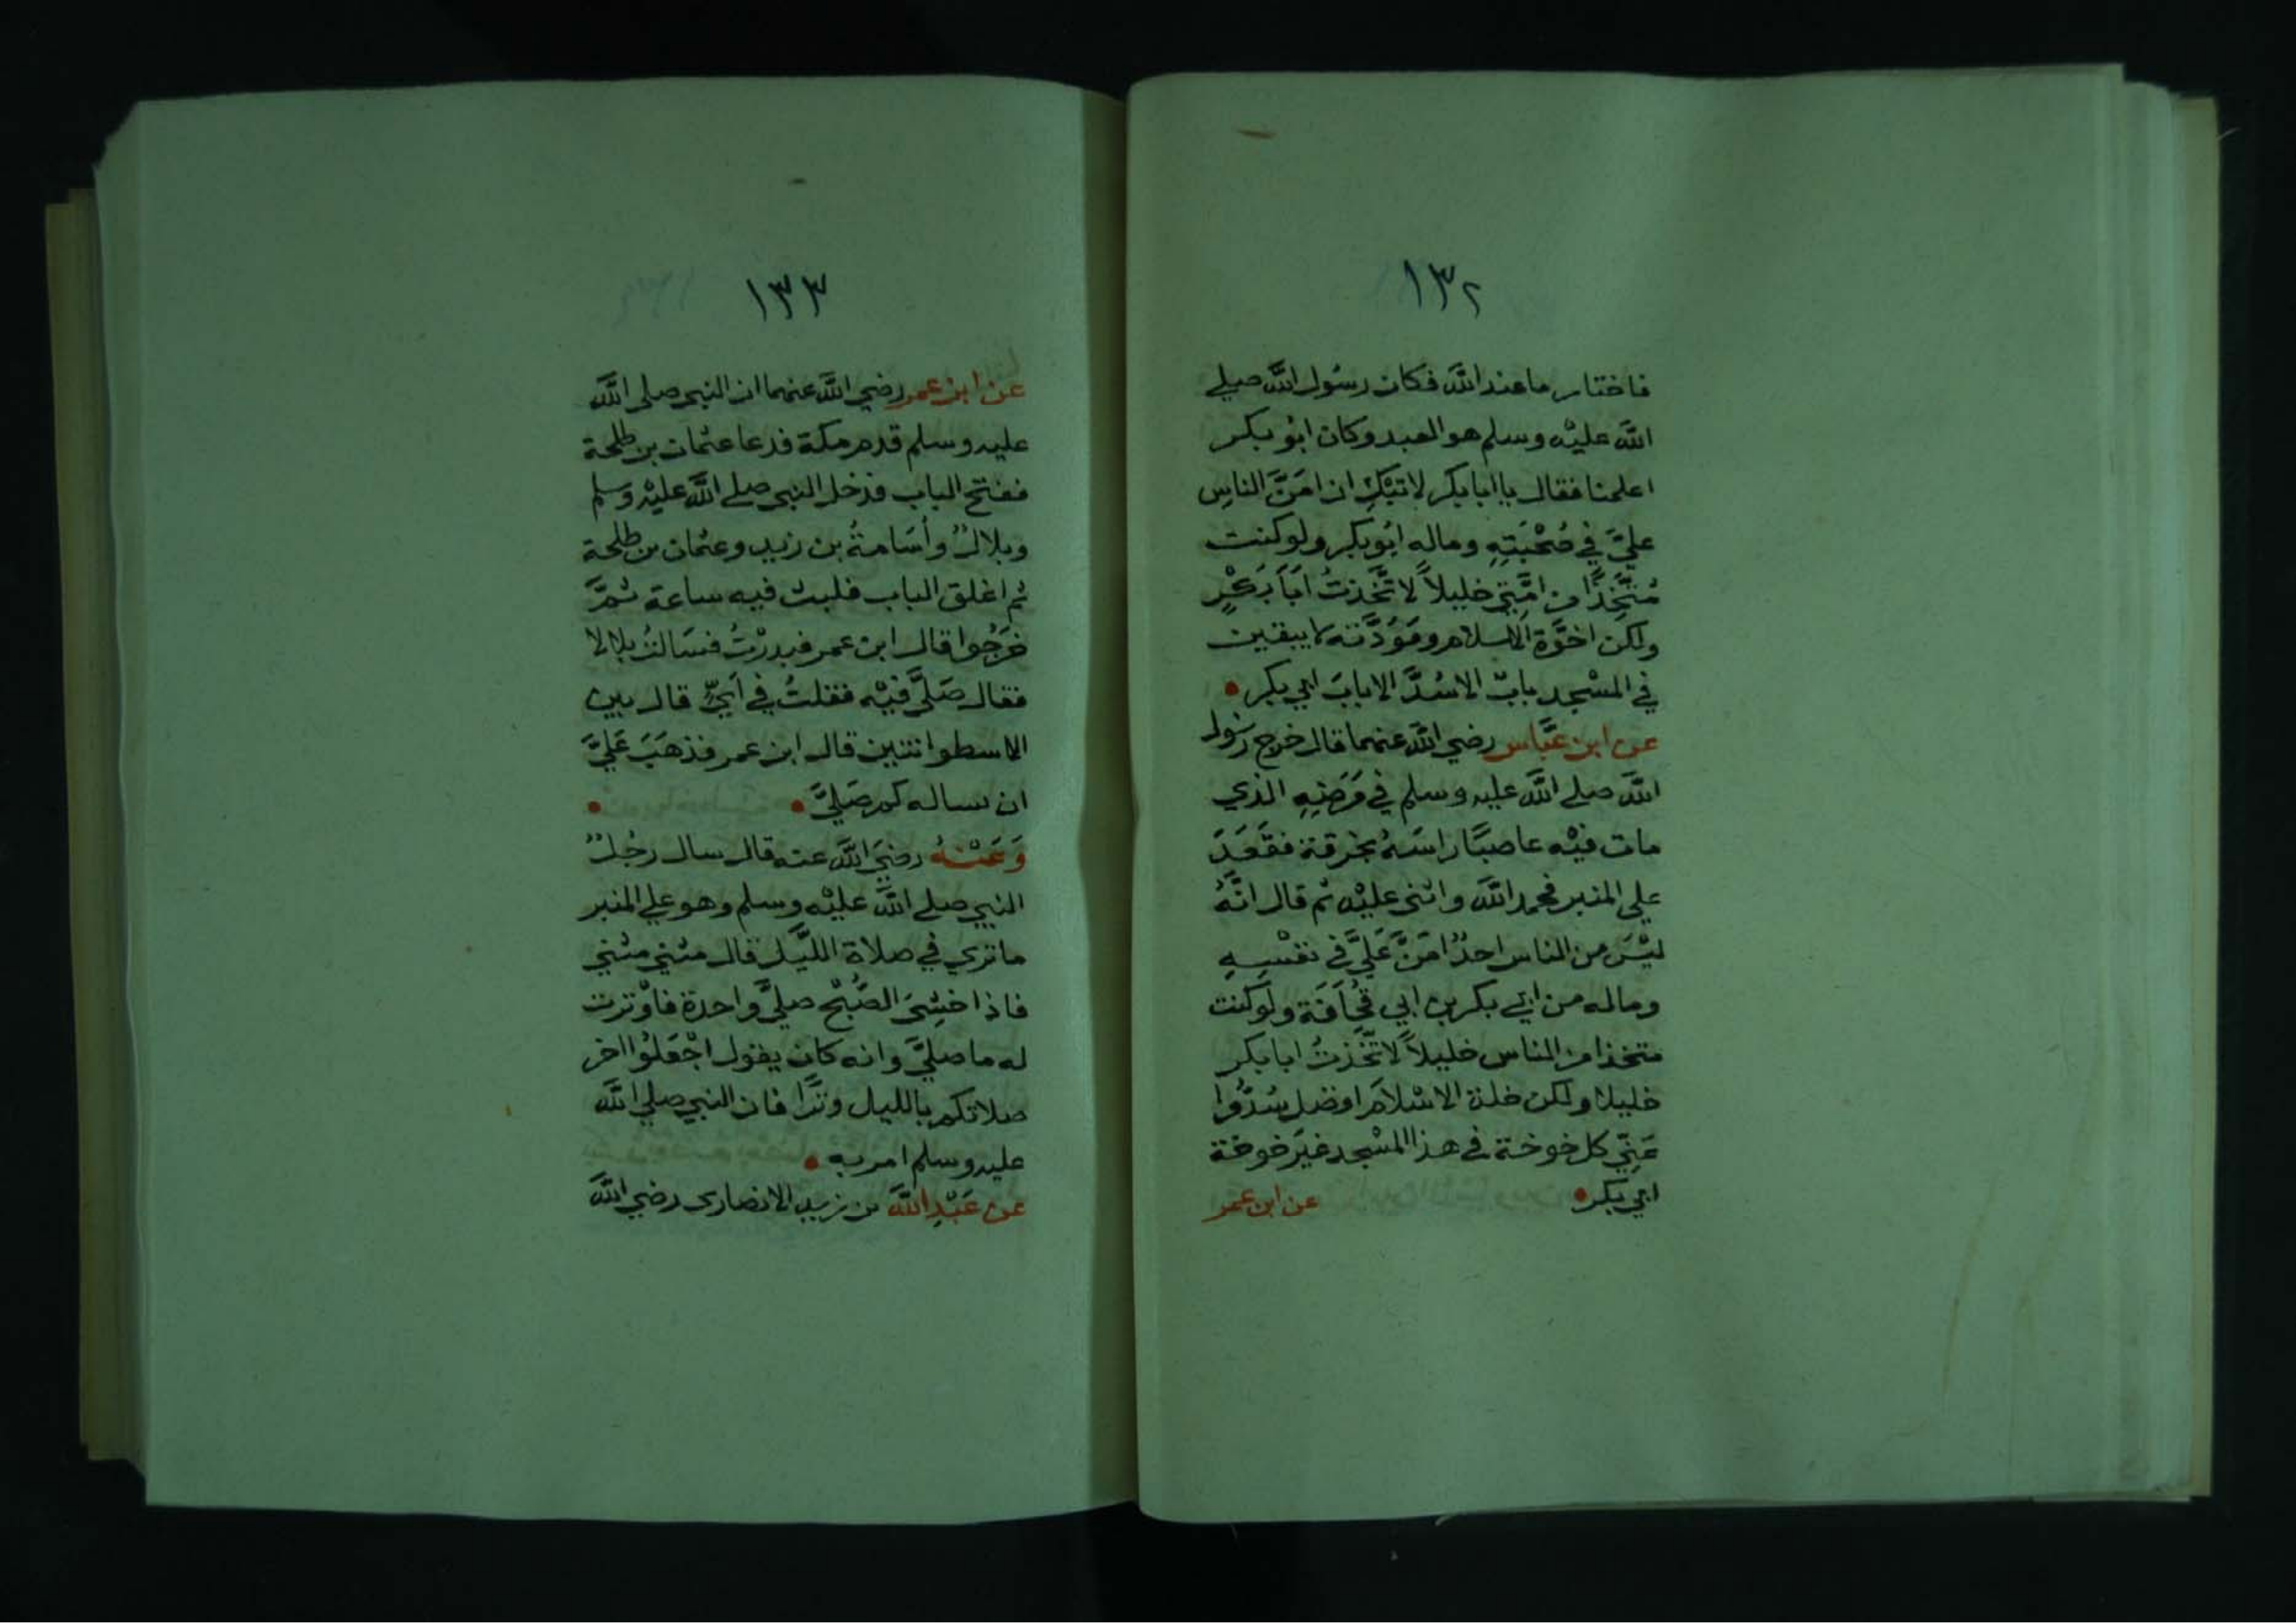 ١٣٢
فاختار ما عند الله فكان رسُول الله صلي
الله عليْه وسلم هو العبد وكان ابُو بكر
اعلمنا فقال يا ابا بكر لا تبْكِ ان امَنَّ الناسِ
عليَّ في صُحْبَتِهِ وماله ابُو بكرٍ ولو كنت
مُتَّخِذًا من امَّتِي خليلاً لاتَّخذتُ اَبَا بَكْرٍ
ولكن اخوَّة الاسلام ومَوَدَّته لا يبقين
في المسْجد بابٌ الا سُدَّ الا بابَ ابي بكر
عن ابن عَبَّاس رضي الله عنهما قال خرج رسُول
الله صلي الله عليه وسلم في مَرَضِهِ الذي
مات فيْه عاصبًا راسَهُ بخرقة فقَعَدَ
علي المنبر فحمد الله واثني عليْه ثم قال انَّهُ
ليْسَ من الناس احدٌ امَنَّ عَلَيَّ في نفْسِهِ
وماله من ابي بكر بن ابي قحُافَة ولَو كنت
متخذا من الناس خليلاً لاتَّخذتُ ابا بكر
خليلا ولكن خلة الاسْلاَم افضل سُدُّوا
عَنِّي كل خوخة في هذا المسْجد غيَر خوخة
ابي بكر عن ابن عمر
١٣٣
عن ابن عمر رضي الله عنهما ان النبي صلي الله
عليه وسلم قدم مكة فدعا عثمان بن طلحة
ففتح الباب فدخل النبي صلي الله عليْه وسلم
وبلالٌ وأُسَامةُ بن زيد وعثمان بن طلحة
ثم اغلق الباب فلبث فيه ساعة ثمَّ
خَرَجُوا قال ابن عمر فبدرْتُ فسَالتُ بلالا
فقال صَلَّي فيْه فقلتُ في اَيٍّ قال بين
الاسطوانتين قال ابن عمر فذهَبَ عَلَيَّ
ان اساله كم صَلَّيَ
وَعَنْهُ رضيَ الله عنه قال سال رجُلٌ
النبي صلي الله عليْه وسلم وهو علي المنبر
ما تري في صلاة اللَّيل قال مثني مثني
فاذا خشِىَ الصُّبْح صليَّ واحدة فاوْترت
له ما صليَّ وانه كان يقول اجْعَلُوا اخر
صلاتكم بالليل وتراً فان النبي صلي الله
عليه وسلم امر به
عن عَبْدِ الله بن زيد الانصارى رضي الله